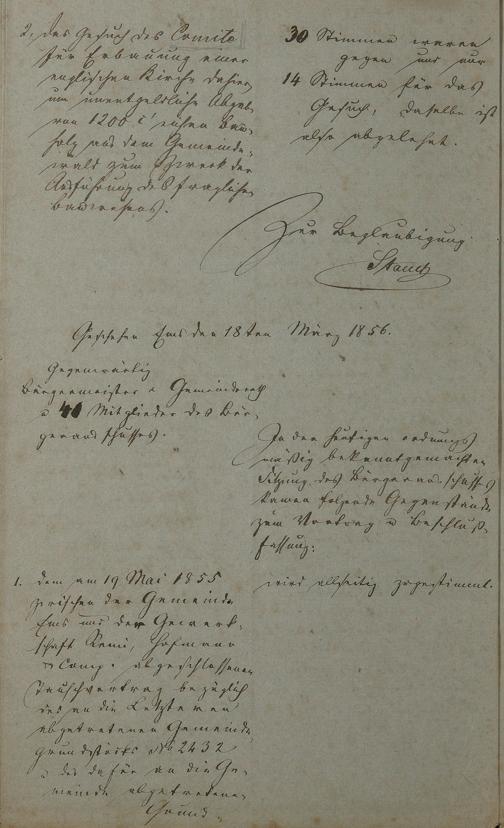 2, das Gesuch des Comite
für Erbauung einer
englischen Kirche dahier
um unentgeldliche Abgabe
von 1200 c' eichen Bau-
holz aus dem Gemeinde-
wald zum Zweck der
Ausführung des fraglichen
Bauwesens.
30 Stimmen waren
gegen und nur
14 Stimmen für das
Gesuch, dasselbe ist
also abgelehnt.
Zur Beglaubigung
Stauch
Geschehen Ems den 18ten März 1856.
Gegenwärtig
Bürgermeister, Gemeinderath
u 41 Mitglieder des Bür-
gerausschusses.
In der heutigen ordnungs
mäßig bekanntgemachten
Sitzung des Bürgerausschusses
kamen folgende Gegenstände
zum Vortrag u Beschluß-
fassung:
1. dem am 19 Mai 1855
zwischen der Gemeinde
Ems und der Gewerk-
schaft Remi, Hofmann
& Comp. abgeschlossenen
Tauschvertrag bezüglich
des an die Letzteren
abgetretenen Gemeinde
grundstücks No 2432
u des dafür an die Ge-
meinde abgetretenen
Grund-
wird allseitig zugestimmt.